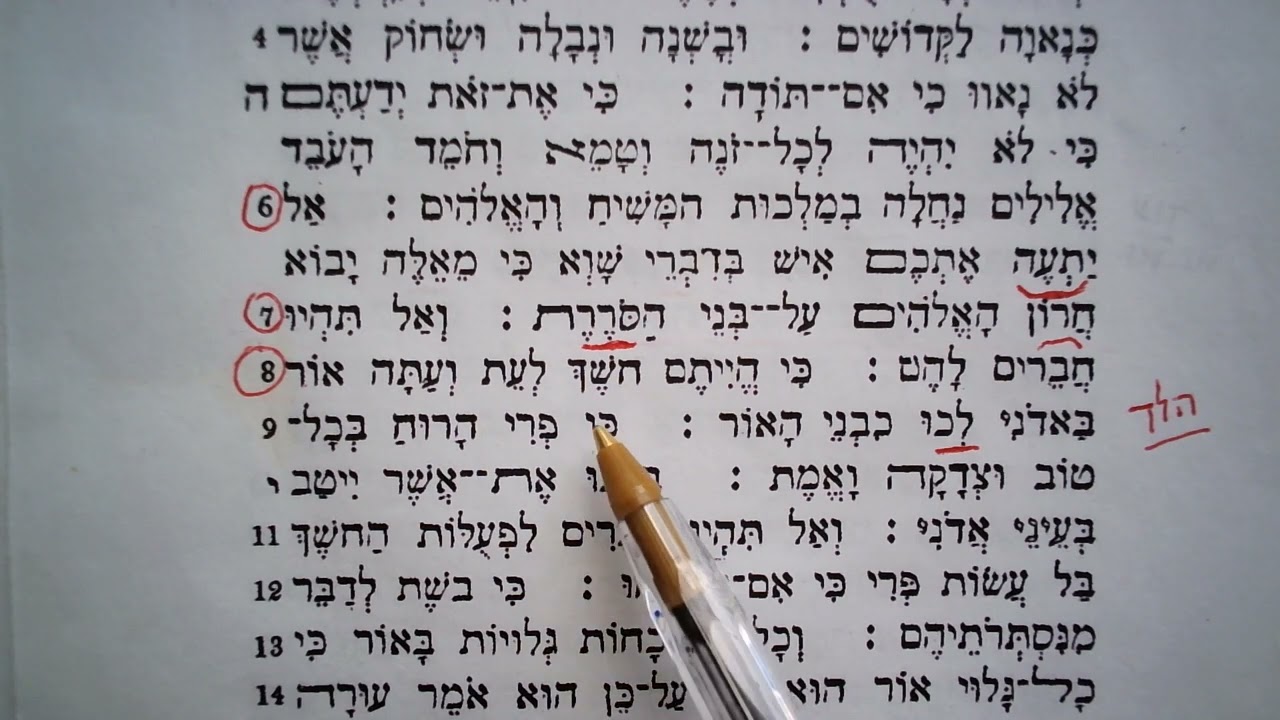 כְּנָאוָה לַקְּדוֹשִׁים : וּבָשְׁנָה וּנְבָלָה וּשְׂחוֹק אֲשֶׁר 4
לֹא נָאווּ כִּי אִם־־תּוֹדָה : כִּי אֶת־זֹאת יְדַעְתֶּם ה
כִּי לֹא יִהְיֶה לְכָל־־זֹנֶה וְטָמֵא וְחֹמֵד הָעֹבֵד
אֱלִילִים נַחֲלָה בְמַלְכוּת הַמָּשִׁיחַ וְהָאֱלֹהִים : אַל 6
יַתְעֶה אֶתְכֶם אִישׁ בְּדִבְרֵי שָׁוְא כִּי מֵאֵלֶּה יָבוֹא
חֲרוֹן הָאֱלֹהִים עַל־־בְּנֵי הַסֹּרֶרֶת : וְאַל תִּהְיוּ 7
חֲבֵרִים לָהֶם : כִּי הֱיִיתֶם חֹשֶׁךְ לְעֵת וְעַתָּה אוֹר 8
בַּאדֹנִי לְכוּ כִּבְנֵי הָאוֹר : כִּי פְּרִי הָרוּחַ בְּכָל־ 9
הלך
טוֹב וּצְדָקָה וָאֱמֶת : אֶת־־אֲשֶׁר יִיטַב י
בְּעֵינֵי אֲדֹנִי : וְאַל לִפְעֻלּוֹת הַחֹשֶׁךְ 11
בַּל עֲשׂוֹת פְּרִי כִּי : כִּי בֹשֶׁת לְדַבֵּר 12
מִנִּסְתְּרֹתֵיהֶם : גְּלוּיוֹת בָּאוֹר כִּי 13
כָּל־גָּלוּי אוֹר הוּא עַל־כֵּן הוּא אֹמֵר עוּרָה 14